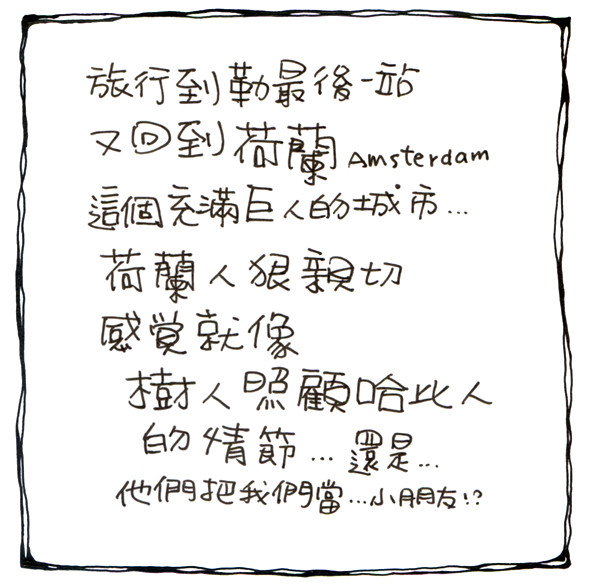 旅行到勒最後一站
又回到荷蘭 Amsterdam
這個充滿巨人的城市...
荷蘭人狠親切
感覚就像
樹人照顧哈比人
的情節... 還是...
他們把我們當...小朋友!?